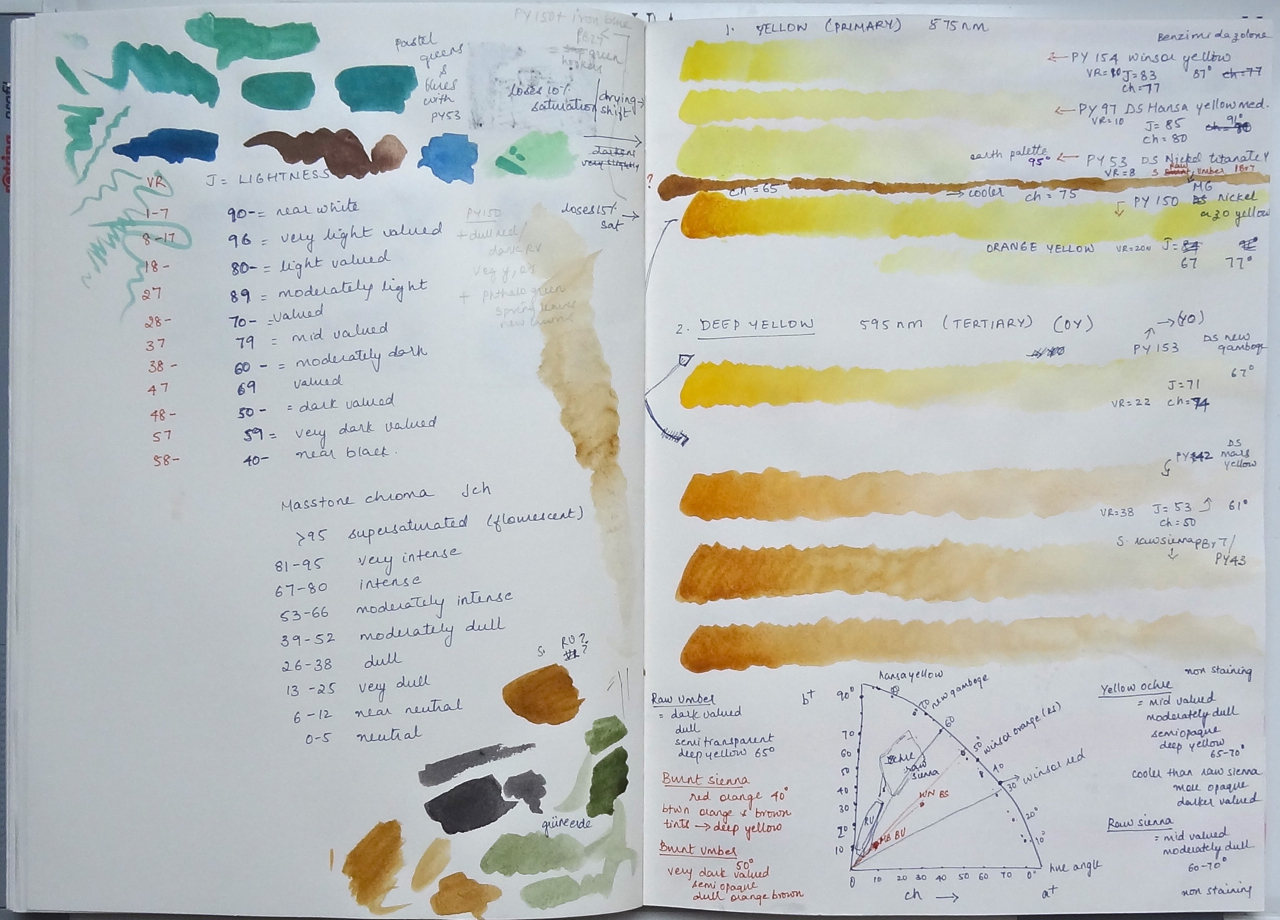 PY150 + iron blue
PB27
= green
hookers
pastel
greens
&
blues
with
PY53
loses 10%
saturation
drying
shift
darkens
very slightly
loses 15%
sat
VR
J = LIGHTNESS
1-7 90- = near white
8-17 96 = very light valued
18- 80- = light valued
27 89 = moderately light
28- 70- = valued
37 79 = mid valued
38- 60- = moderately dark
47 69 valued
48- 50- = dark valued
57 59 = very dark valued
58- 40- near black.
PY150
+ dull red/
dark RV
+ phthalo green
spring leaves
new lawns
Masstone chroma Jch
>95 supersaturated (flourescent)
81-95 very intense
67-80 intense
53-66 moderately intense
39-52 moderately dull
26-38 dull
13-25 very dull
6-12 near neutral
0-5 neutral
S. RU?
?
grünerde
1. YELLOW (PRIMARY) 575nm
Benzimidazolone
← PY 154 winsor yellow
VR=10 J=83 87° ch=77
ch=77
← PY97 DS Hansa yellow med.
VR=10 J=85 91° ch=80
ch=80
earth palette 95° ← PY53 DS Nickel titanate Y
VR=8 S burnt raw umber PBr7
?
ch=65 → cooler ch=75
MG
PY150 DS nickel
azo yellow
ORANGE YELLOW VR=20 J=
67 77°
2. DEEP YELLOW 595nm (TERTIARY) (OY) → (YO)
PY153 DS new
gamboge
67°
J=71
VR=22 ch=74
PY42 DS
mars
yellow
VR=38 J=53 61°
ch=50
S. raw sienna PBr7/
PY43
Raw umber
= dark valued
dull
semitransparent
deep yellow 65°
Burnt sienna
red orange 40°
btwn orange & brown
tints → deep yellow
Burnt umber
50°
very dark valued
semiopaque
dull orange brown
b+
90°
hansa yellow
80
70 new gamboge
60
50° winsor orange (RS)
40
winsor red
30
20°
10°
70
60
50
40
30
20
10
ochre
raw
sienna
RU
WN BS
MB BU
0 10 20 30 40 50 60 70 0° hue angle
ch → a+
non staining
Yellow ochre
= mid valued
moderately dull
semiopaque
deep yellow
65-70°
cooler than raw sienna
more opaque
darker valued
Raw sienna
= mid valued
moderately dull
60-70°
non staining